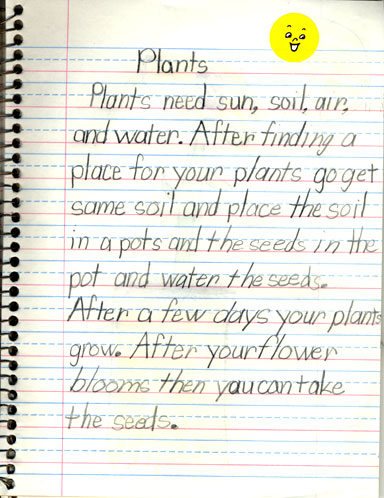 Plants
Plants need sun, soil, air,
and water. After finding a
place for your plants go get
some soil and place the soil
in a pots and the seeds in the
pot and water the seeds.
After a few days your plants
grow. After your flower
blooms then you can take
the seeds.